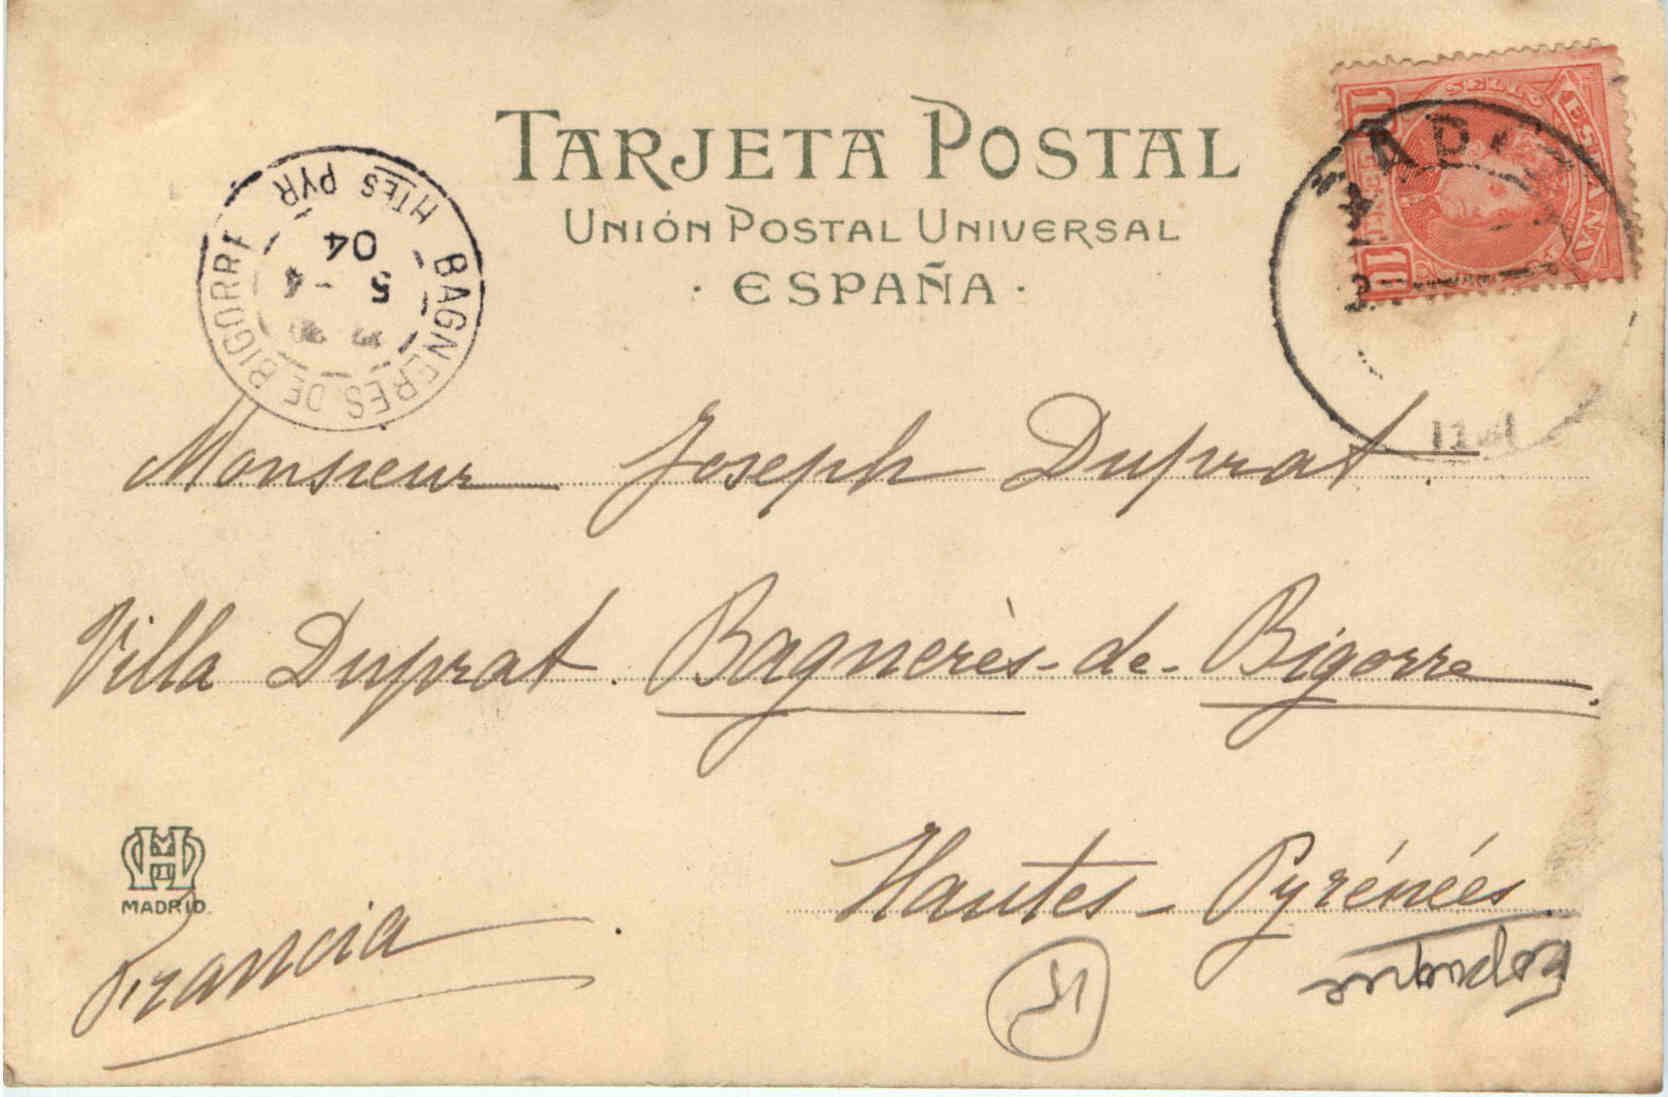 TARJETA POSTAL
UNIÓN POSTAL UNIVERSAL
· ESPAÑA ·
ESPAÑA
10
10
BAGNERES DE BIGORRE
HTES PYR
5 - 4
04
Monsieur Joseph Duprat.
Villa Duprat. Bagnerès-de-Bigorre.
Hautes-Pyrénées
MADRID.
Francia.
Espagne